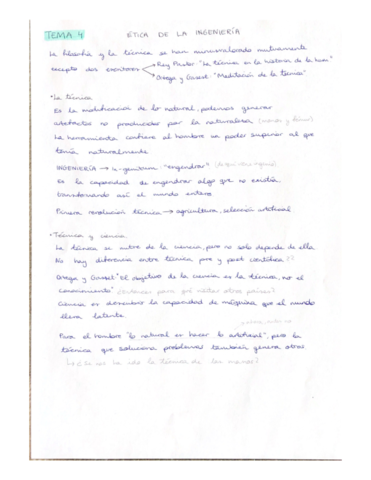 TEMA 4 ÉTICA DE LA INGENIERÍA
La filosofía y la técnica se han minusvalorado mutuamente
excepto dos escritores Rey Pastor "La técnica en la historia de la
Ortega y Gasset "Meditación de la técnica"
• La técnica
Es la modificación de lo natural, podemos generar
artefactos no producidos por la naturaleza
La herramienta confiere al hombre un poder superior al que
tenía naturalmente
INGENIERÍA → "engendrar"
Es la capacidad de engendrar algo que no existía,
transformando así el mundo entero
Primera revolución técnica → agricultura, selección artificial
• Técnica y ciencia
La técnica se nutre de la ciencia, pero no solo depende de ella
No hay diferencia entre técnica pre y post científica
Ortega y Gasset "El objetivo de la ciencia es la técnica, no el
conocimiento"
Ciencia es descubrir la capacidad de máquina que el mundo
lleva latente
Para el hombre "lo natural es hacer lo artificial", pero la
técnica que soluciona problemas también genera otros
la técnica de las manos?